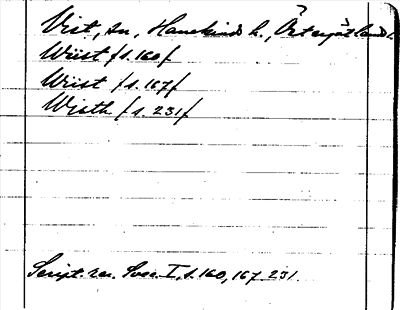 Vist, sn, Hanekinds h., Östergötland.
Wiist /s. 160/
Wiist /s. 167/
Wisth /s. 231/
Script. rer. Svec. I, s. 160, 167 231.